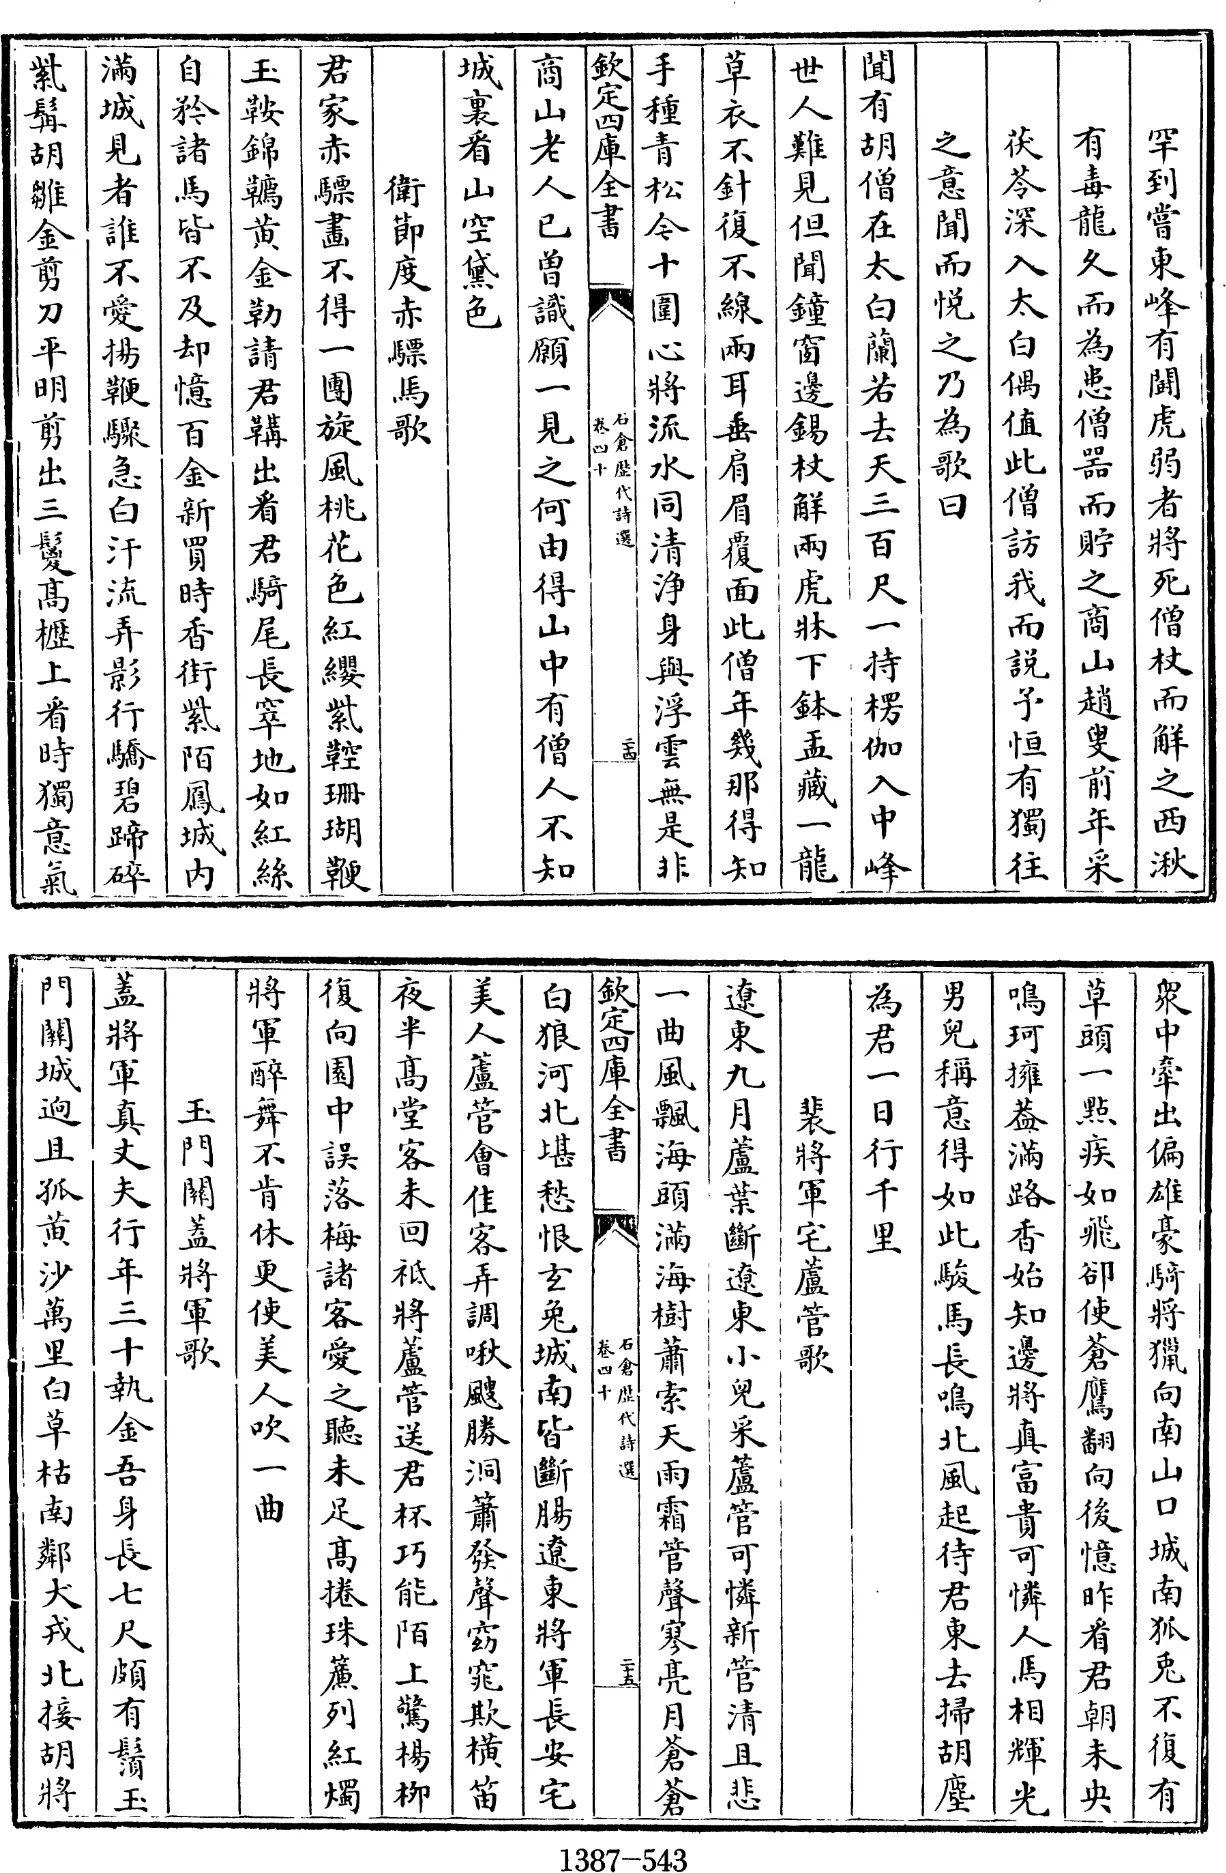 罕到嘗東峰有鬬虎弱者將死僧杖而解之西湫
有毒龍久而為患僧器而貯之商山趙叟前年采
茯苓深入太白偶值此僧訪我而説予恒有獨往
之意聞而悦之乃為歌曰
聞有胡僧在太白蘭若去天三百尺一持楞伽入中峰
世人難見但聞鐘窗邊錫杖解兩虎牀下鉢盂藏一龍
草衣不針復不線兩耳垂肩眉覆面此僧年幾那得知
手種青松今十圍心將流水同清浄身與浮雲無是非
欽定四庫全書
石倉歴代詩選
卷四十
二十四
商山老人已曾識願一見之何由得山中有僧人不知
城裏看山空黛色
衛節度赤驃馬歌
君家赤驃畫不得一團旋風桃花色紅纓紫鞚珊瑚鞭
玉鞍錦韉黄金勒請君鞲出看君騎尾長窣地如紅絲
自矜諸馬皆不及却憶百金新買時香街紫陌鳳城内
滿城見者誰不愛揚鞭驟急白汗流弄影行驕碧蹄碎
紫髯胡雛金剪刀平明剪出三鬉高櫪上看時獨意氣
衆中牽出偏雄豪騎將獵向南山口城南狐兎不復有
草頭一點疾如飛卻使蒼鷹翻向後憶昨看君朝未央
鳴珂擁葢滿路香始知邊將真富貴可憐人馬相輝光
男兒稱意得如此駿馬長鳴北風起待君東去掃胡塵
為君一日行千里
裴將軍宅蘆管歌
遼東九月蘆葉斷遼東小兒采蘆管可憐新管清且悲
一曲風飄海頭滿海樹蕭索天雨霜管聲寥亮月蒼蒼
欽定四庫全書
石倉歴代詩選
卷四十
二十五
白狼河北堪愁恨玄兎城南皆斷腸遼東將軍長安宅
美人蘆管會佳客弄調啾颼勝洞簫發聲窈窕欺横笛
夜半高堂客未回祗將蘆管送君杯巧能陌上驚楊柳
復向園中誤落梅諸客愛之聽未足高捲珠簾列紅燭
將軍醉舞不肯休更使美人吹一曲
玉門關葢將軍歌
葢將軍真丈夫行年三十執金吾身長七尺頗有鬚玉
門關城迥且孤黄沙萬里白草枯南鄰犬戎北接胡將
1387-543